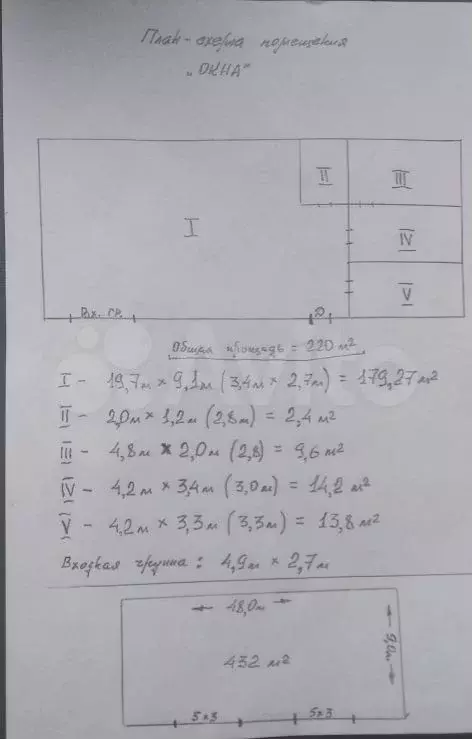 План-схема помещения
"ОКНА"
II
III
I
IV
V
Вх. гр.
Д
Общая площадь = 220 м²
I - 19,7м × 9,1м (3,4м × 2,7м) = 179,27м²
II - 2,0м × 1,2м (2,8м) = 2,4 м²
III - 4,8м × 2,0м (2,8) = 9,6 м²
IV - 4,2м × 3,4м (3,0м) = 14,2 м²
V - 4,2м × 3,3м (3,3м) = 13,8 м²
Входная группа: 4,9м × 2,7м
48,0м
9,0м
432 м²
5×3
5×3
Avito